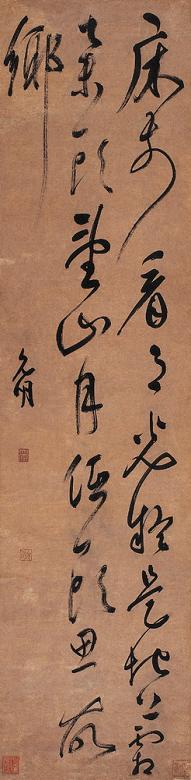 床前看月光疑是地上霜
舉頭望山月低頭思故
鄉
允明